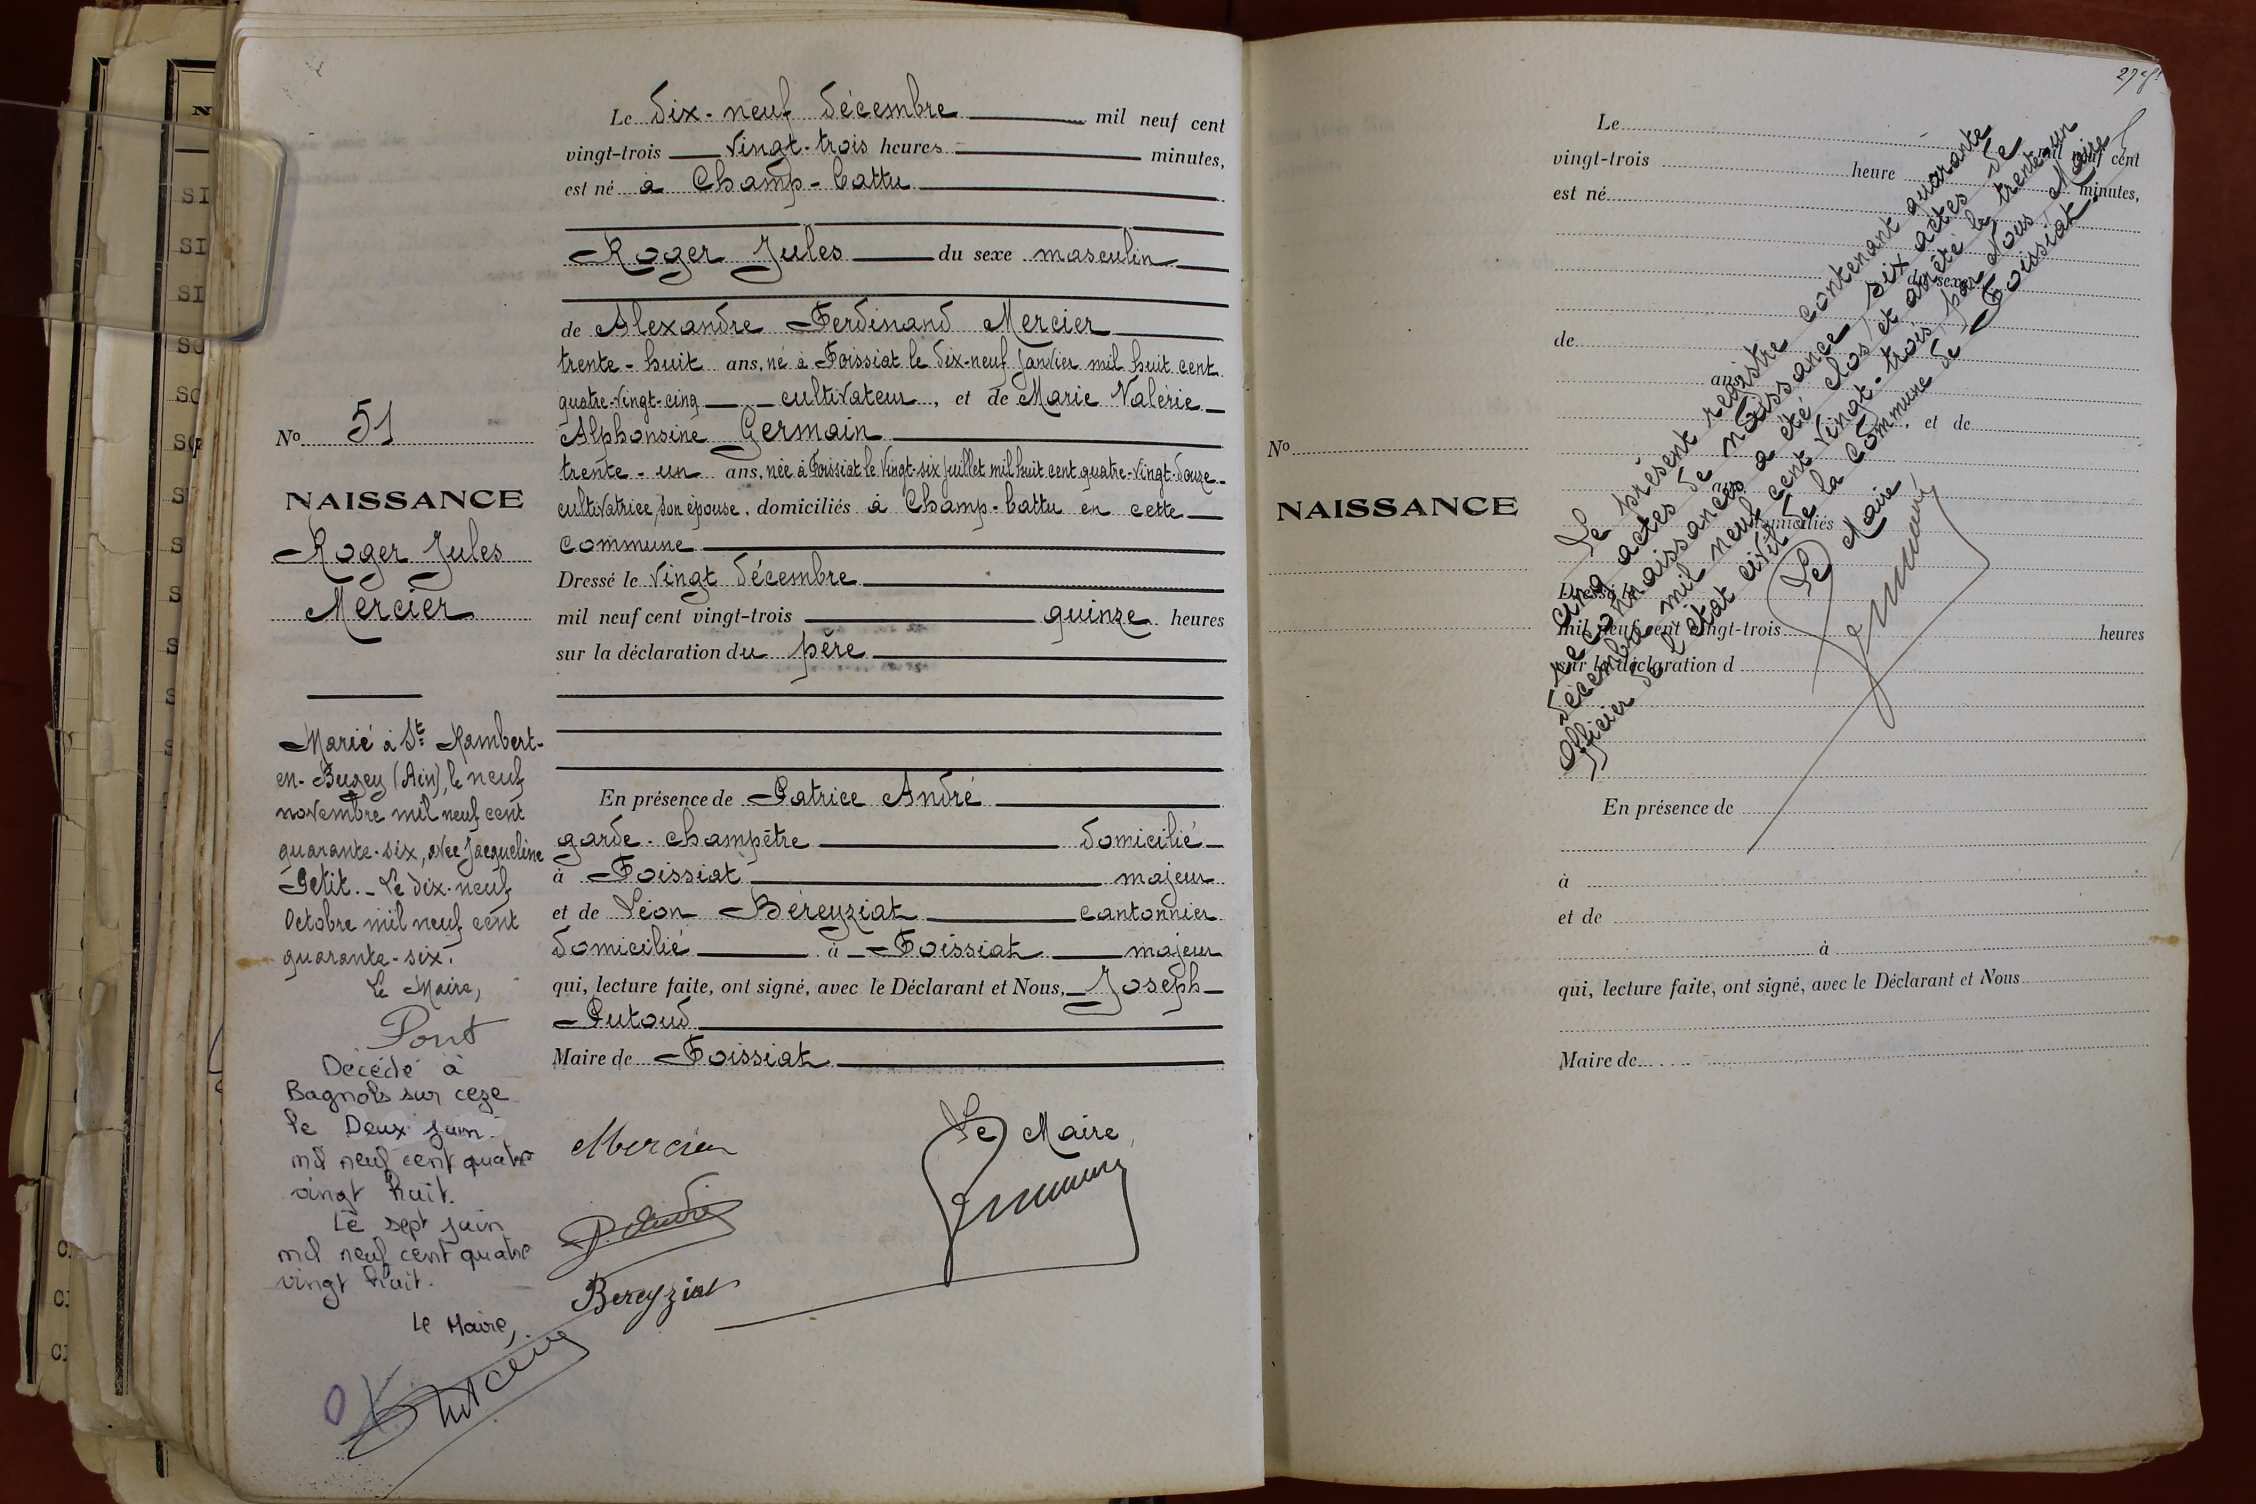 N
SI
SI
SI
N° 51
NAISSANCE
Roger Jules
Mercier
Marié à St Rambert-
en-Bugey (Ain), le neuf
novembre mil neuf cent
quarante-six, avec Jacqueline
Petit. _ Le dix-neuf
Octobre mil neuf cent
quarante-six.
Le Maire,
Pont
Décédé à
Bagnols sur ceze
le Deux juin
mil neuf cent quatre
vingt huit.
Le sept juin
mil neuf cent quatre
vingt huit.
Le Maire,
Le dix-neuf décembre mil neuf cent
vingt-trois vingt-trois heures minutes,
est né à Champ-battu
Roger Jules du sexe masculin
de Alexandre Ferdinand Mercier
trente-huit ans, né à Foissiat le dix-neuf janvier mil huit cent
quatre-vingt-cinq cultivateur, et de Marie Valérie
Alphonsine Germain
trente-un ans, née à Foissiat le vingt-six juillet mil huit cent quatre-vingt-douze
cultivatrice, son épouse, domiciliés à Champ-battu en cette
commune
Dressé le vingt décembre
mil neuf cent vingt-trois quinze heures
sur la déclaration du père
En présence de Patrice André
garde-champêtre domicilié
à Foissiat majeur
et de Léon Béreyziat cantonnier
domicilié à Foissiat majeur
qui, lecture faite, ont signé, avec le Déclarant et Nous, Joseph
Putoud
Maire de Foissiat
Mercier
Le Maire,
P. André
Bereyziat
N°
NAISSANCE
Le mil neuf cent
vingt-trois heure minutes,
est né
du sexe
de
ans
et de
ans
domiciliés
Dressé le
mil neuf cent vingt-trois heures
sur la déclaration d
En présence de
à
et de
à
qui, lecture faite, ont signé, avec le Déclarant et Nous
Maire de
Le présent registre contenant quarante
cinq actes de naissance, six actes de
reconnaissances a été clos et arrêté le trente-un
décembre mil neuf cent vingt-trois, par Nous Maire
officier de l'état civil de la commune de Foissiat.
Le Maire